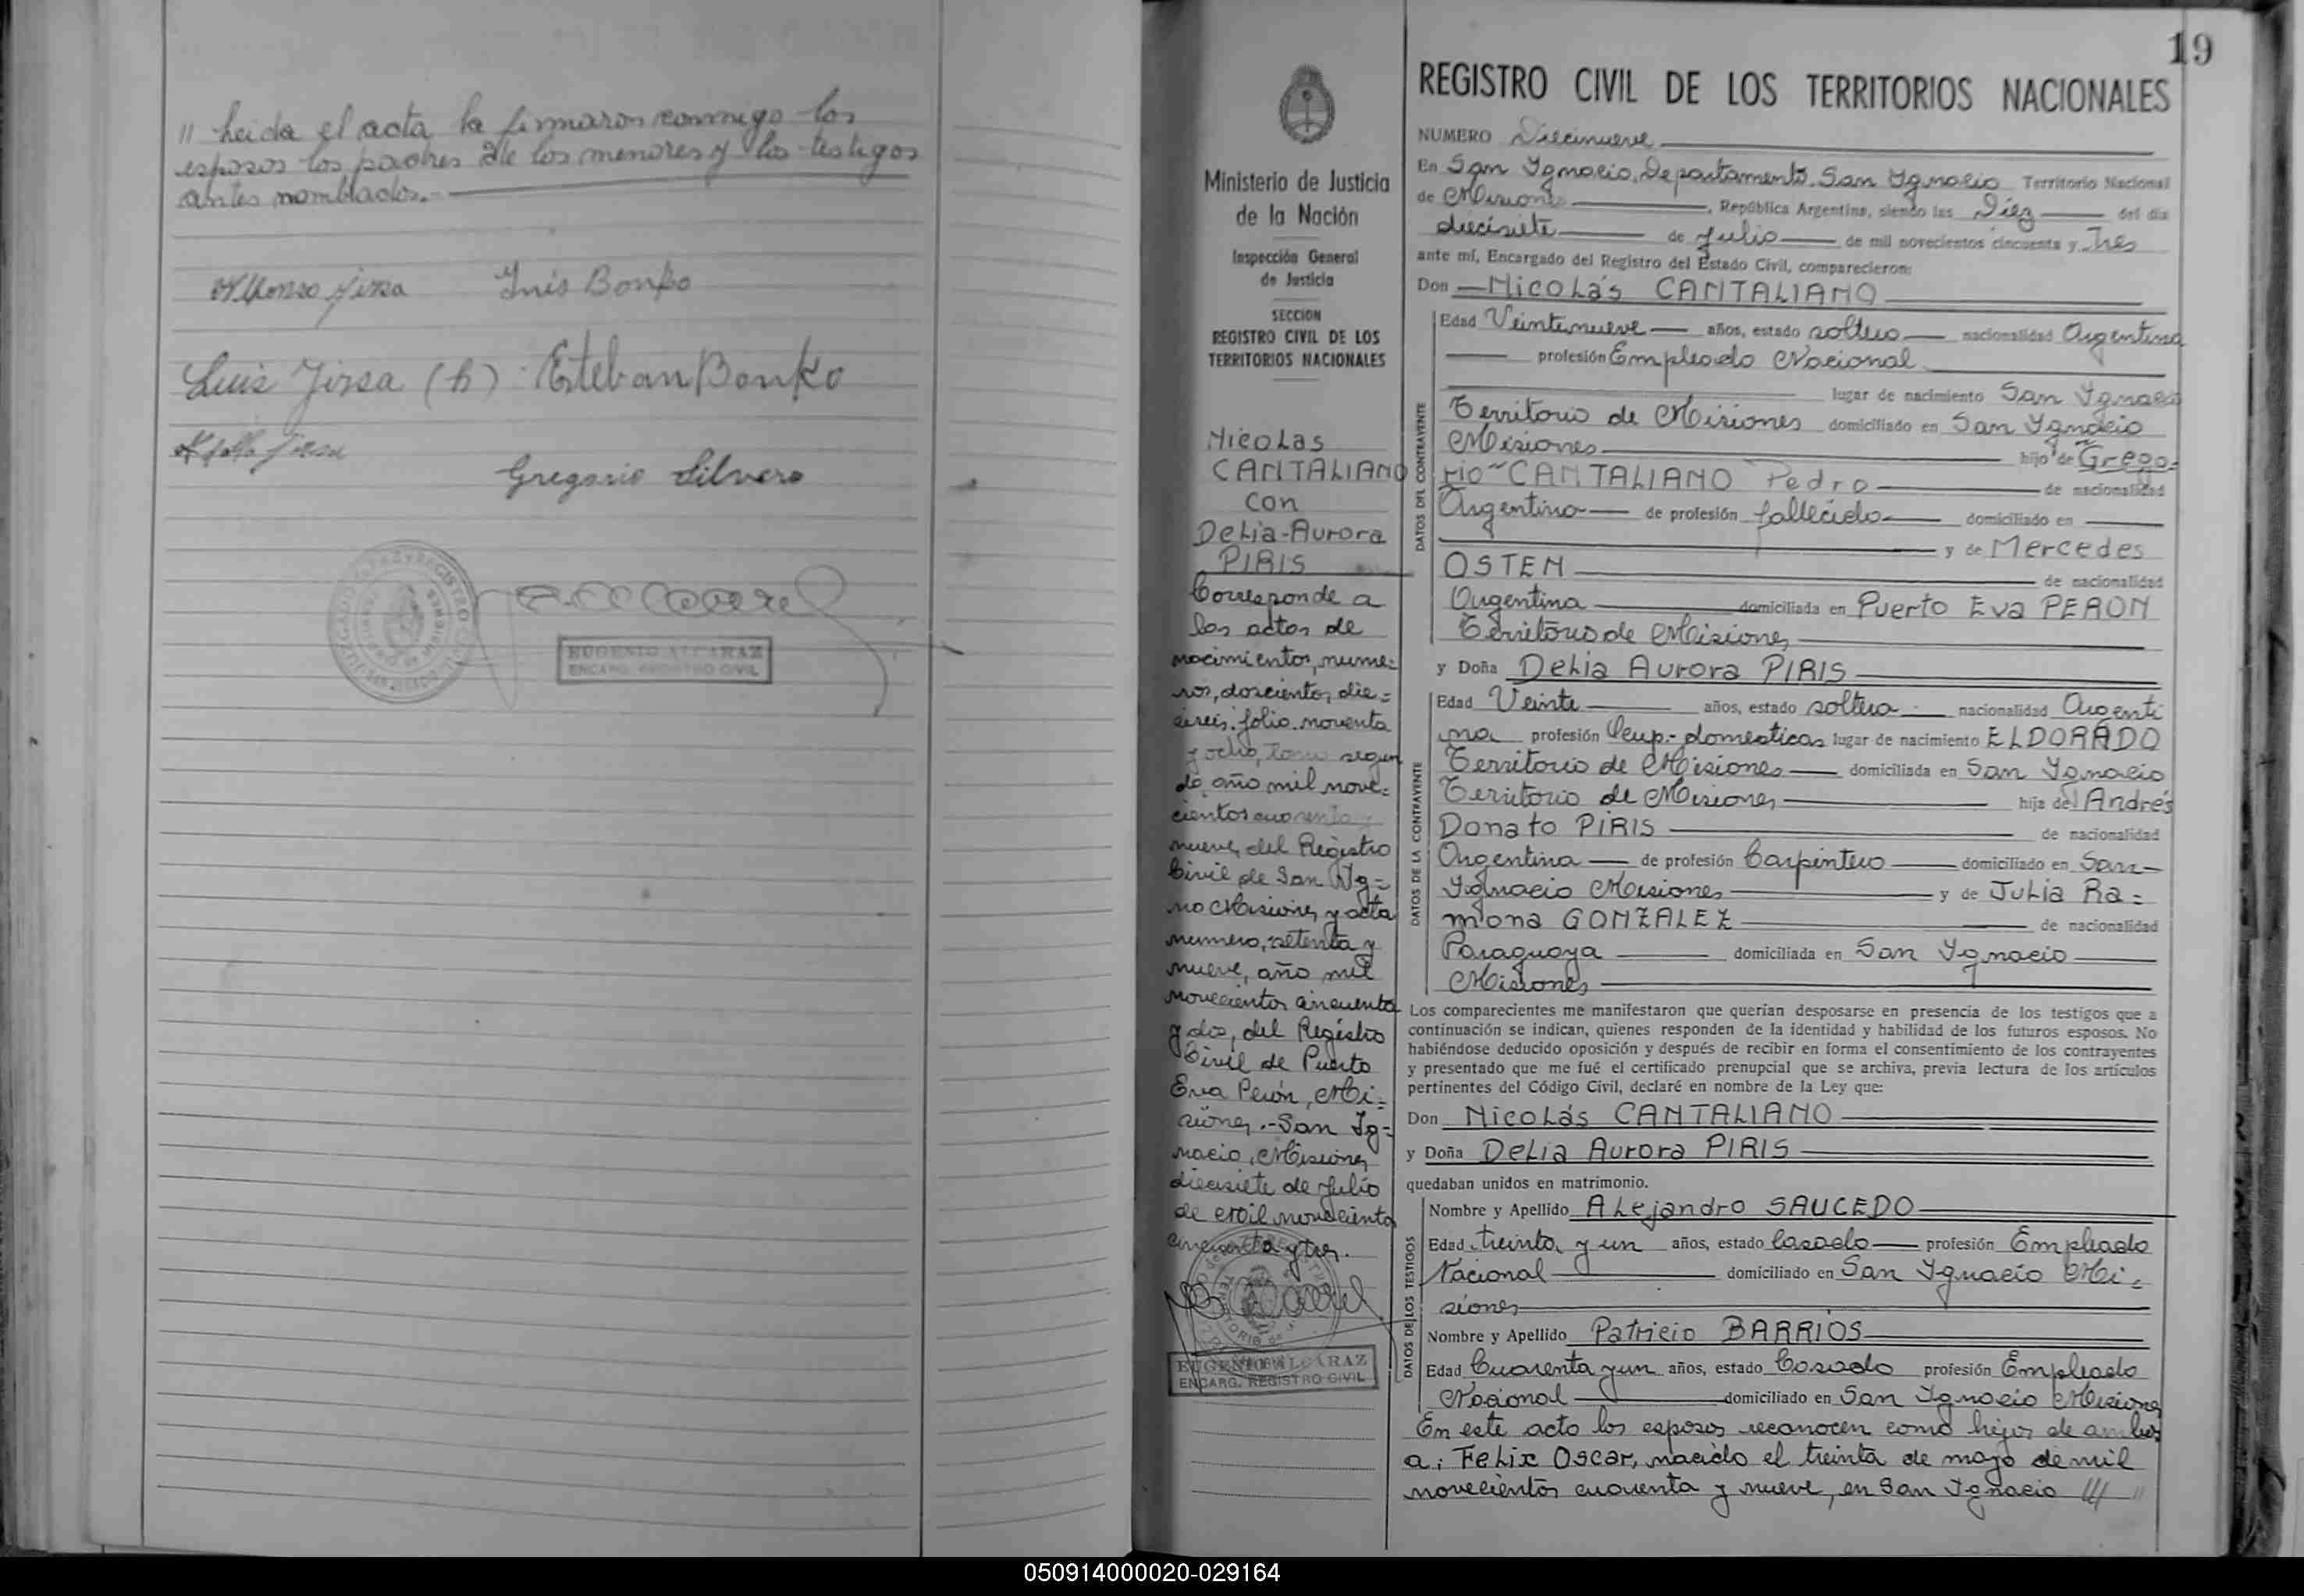 " Leida el acta la firmaron conmigo los
esposos los padres de los menores y los testigos
antes nombrados.-
Alfonso Jirsa Inés Bonko
Luis Jirsa (h) Esteban Bonko
Gregorio Silvero
EUGENIO ALCARAZ
ENCARG. REGISTRO CIVIL
19
Ministerio de Justicia
de la Nación
Inspección General
de Justicia
SECCION
REGISTRO CIVIL DE LOS
TERRITORIOS NACIONALES
Nicolas
CANTALIANO
con
Delia-Aurora
PIRIS
Corresponde a
los actos de
nacimientos, nume=
ros, doscientos die=
ciseis. folio noventa
y ocho, tomo segun
do, año mil nove=
cientos cuarenta y
nueve, del Registro
Civil de San Yg=
no Misiones, y acta
numero, setenta y
nueve, año mil
novecientos cincuenta
y dos, del Registro
Civil de Puerto
Eva Perón, Mi=
siones.-San Ig=
nacio, Misiones,
diecisiete de Julio
de mil novecientos
cincuenta y tres.
EUGENIO ALCARAZ
ENCARG. REGISTRO CIVIL
REGISTRO CIVIL DE LOS TERRITORIOS NACIONALES
NUMERO Diecinueve
En San Ygnacio, Departamento San Ygnacio Territorio Nacional
de Misiones, República Argentina, siendo las Diez del día
diecisiete de Julio de mil novecientos cincuenta y Tres
ante mí, Encargado del Registro del Estado Civil, comparecieron:
Don Nicolás CANTALIANO
Edad Veintinueve años, estado soltero nacionalidad Argentina
profesión Empleado Nacional
lugar de nacimiento San Ygnacio
DATOS DEL CONTRAYENTE
Territorio de Misiones domiciliado en San Ygnacio
Misiones hijo de Grego=
rio "CANTALIANO Pedro de nacionalidad
Argentino de profesión fallecido domiciliado en
y de Mercedes
OSTEN de nacionalidad
Argentina domiciliada en Puerto Eva PERON
Territorio de Misiones
y Doña Delia Aurora PIRIS
Edad Veinte años, estado soltera nacionalidad Argenti
na profesión Ocup.-domesticas lugar de nacimiento ELDORADO
Territorio de Misiones domiciliada en San Ygnacio
DATOS DE LA CONTRAYENTE
Territorio de Misiones hija de Andrés
Donato PIRIS de nacionalidad
Argentina de profesión Carpintero domiciliado en San
Ygnacio Misiones y de Julia Ra=
mona GONZALEZ de nacionalidad
Paraguaya domiciliada en San Ygnacio
Misiones
Los comparecientes me manifestaron que querían desposarse en presencia de los testigos que a
continuación se indican, quienes responden de la identidad y habilidad de los futuros esposos. No
habiéndose deducido oposición y después de recibir en forma el consentimiento de los contrayentes
y presentado que me fué el certificado prenupcial que se archiva, previa lectura de los artículos
pertinentes del Código Civil, declaré en nombre de la Ley que:
Don Nicolás CANTALIANO
y Doña Delia Aurora PIRIS
quedaban unidos en matrimonio.
DATOS DE LOS TESTIGOS
Nombre y Apellido Alejandro SAUCEDO
Edad treinta y un años, estado Casado profesión Empleado
Nacional domiciliado en San Ygnacio Mi=
siones
Nombre y Apellido Patricio BARRIOS
Edad Cuarenta y un años, estado Casado profesión Empleado
Nacional domiciliado en San Ygnacio Misiones
En este acto los esposos reconocen como hijos de ambos
a: Felix Oscar, nacido el treinta de mayo de mil
novecientos cuarenta y nueve, en San Ygnacio ///
050914000020-029164